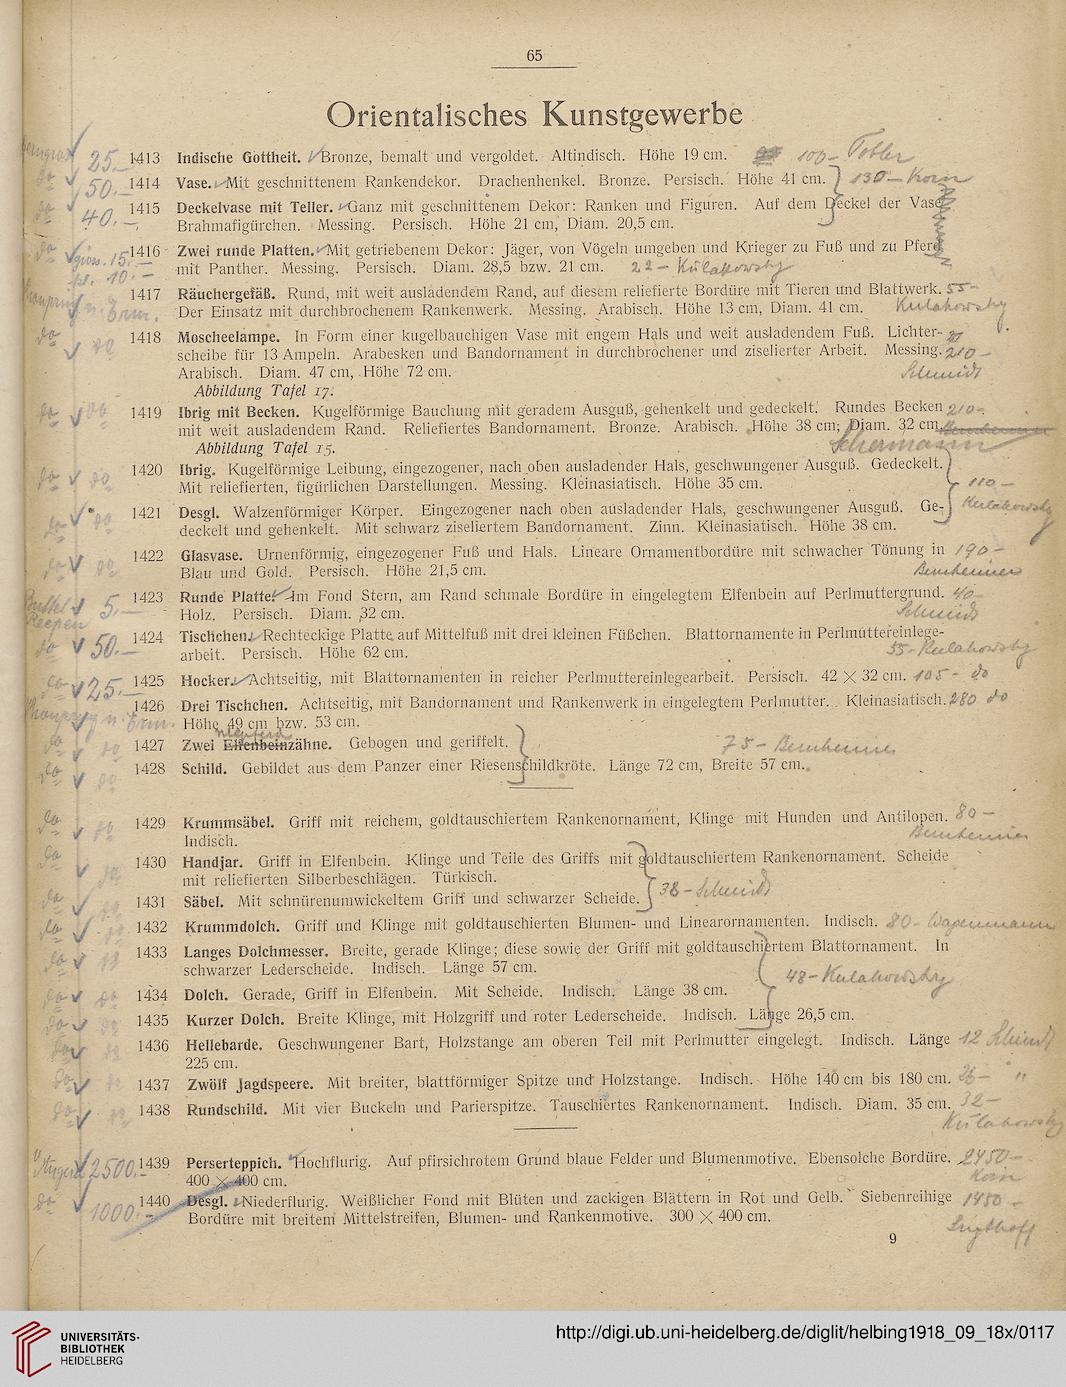 65
Orientalisches Kunstgewerbe
25.– 1413 Indische Gottheit. Bronze, bemalt und vergoldet. Altindisch. Höhe 19 cm. 100– Tobler
do 50.– 1414 Vase. Mit geschnittenem Rankendekor. Drachenhenkel. Bronze. Persisch. Höhe 41 cm. 130– Korn
do 40.– 1415 Deckelvase mit Teller. Ganz mit geschnittenem Dekor: Ranken und Figuren. Auf dem Deckel der Vase
Brahmafigürchen. Messing. Persisch. Höhe 21 cm, Diam. 20,5 cm.
do 15.– 1416 Zwei runde Platten. Mit getriebenem Dekor: Jäger, von Vögeln umgeben und Krieger zu Fuß und zu Pferd
10.– mit Panther. Messing. Persisch. Diam. 28,5 bzw. 21 cm. 22– Kulakowsky
1417 Räuchergefäß. Rund, mit weit ausladendem Rand, auf diesem reliefierte Bordüre mit Tieren und Blattwerk. 55–
Der Einsatz mit durchbrochenem Rankenwerk. Messing. Arabisch. Höhe 13 cm, Diam. 41 cm. Kulakowsky
do do 1418 Moscheelampe. In Form einer kugelbauchigen Vase mit engem Hals und weit ausladendem Fuß. Lichter-
scheibe für 13 Ampeln. Arabesken und Bandornament in durchbrochener und ziselierter Arbeit. Messing. 210–
Arabisch. Diam. 47 cm, Höhe 72 cm. Schmidt
Abbildung Tafel 17.
do do 1419 Ibrig mit Becken. Kugelförmige Bauchung mit geradem Ausguß, gehenkelt und gedeckelt. Rundes Becken 210–
mit weit ausladendem Rand. Reliefiertes Bandornament. Bronze. Arabisch. Höhe 38 cm; Diam. 32 cm.
Abbildung Tafel 15. Schermann
do do 1420 Ibrig. Kugelförmige Leibung, eingezogener, nach oben ausladender Hals, geschwungener Ausguß. Gedeckelt.
Mit reliefierten, figürlichen Darstellungen. Messing. Kleinasiatisch. Höhe 35 cm. 110–
do do 1421 Desgl. Walzenförmiger Körper. Eingezogener nach oben ausladender Hals, geschwungener Ausguß. Ge- Kulakowsky
deckelt und gehenkelt. Mit schwarz ziseliertem Bandornament. Zinn. Kleinasiatisch. Höhe 38 cm.
do do 1422 Glasvase. Urnenförmig, eingezogener Fuß und Hals. Lineare Ornamentbordüre mit schwacher Tönung in 190–
Blau und Gold. Persisch. Höhe 21,5 cm. Bernheimer
5.– 1423 Runde Platte. Im Fond Stern, am Rand schmale Bordüre in eingelegtem Elfenbein auf Perlmuttergrund. 40–
Holz. Persisch. Diam. 32 cm. Schmidt
do 50.– 1424 Tischchen. Rechteckige Platte auf Mittelfuß mit drei kleinen Füßchen. Blattornamente in Perlmuttereinlege-
arbeit. Persisch. Höhe 62 cm. 55– Kulakowsky
do 25.– 1425 Hocker. Achtseitig, mit Blattornamenten in reicher Perlmuttereinlegearbeit. Persisch. 42 × 32 cm. 105– do
1426 Drei Tischchen. Achtseitig, mit Bandornament und Rankenwerk in eingelegtem Perlmutter. Kleinasiatisch. 280 do
Höhe 49 cm bzw. 53 cm.
do do 1427 Zwei Elfenbeinzähne. Gebogen und geriffelt. 75– Bernheimer
do do 1428 Schild. Gebildet aus dem Panzer einer Riesenschildkröte. Länge 72 cm, Breite 57 cm.
do do 1429 Krummsäbel. Griff mit reichem, goldtauschiertem Rankenornament, Klinge mit Hunden und Antilopen. 80–
Indisch. Bernheimer
do do 1430 Handjar. Griff in Elfenbein. Klinge und Teile des Griffs mit goldtauschiertem Rankenornament. Scheide
mit reliefierten Silberbeschlägen. Türkisch.
do do 1431 Säbel. Mit schnürenumwickeltem Griff und schwarzer Scheide. 38– Schmidt
do do 1432 Krummdolch. Griff und Klinge mit goldtauschierten Blumen- und Linearornamenten. Indisch. 80– Wagenmann
do do 1433 Langes Dolchmesser. Breite, gerade Klinge; diese sowie der Griff mit goldtauschiertem Blattornament. In
schwarzer Lederscheide. Indisch. Länge 57 cm. 48– Kulakowsky
do do 1434 Dolch. Gerade, Griff in Elfenbein. Mit Scheide. Indisch. Länge 38 cm.
do do 1435 Kurzer Dolch. Breite Klinge, mit Holzgriff und roter Lederscheide. Indisch. Länge 26,5 cm.
do do 1436 Hellebarde. Geschwungener Bart, Holzstange am oberen Teil mit Perlmutter eingelegt. Indisch. Länge 12 Schmidt
225 cm.
do do 1437 Zwölf Jagdspeere. Mit breiter, blattförmiger Spitze und Holzstange. Indisch. Höhe 140 cm bis 180 cm. 36– "
do do 1438 Rundschild. Mit vier Buckeln und Parierspitze. Tauschiertes Rankenornament. Indisch. Diam. 35 cm. 32–
Kulakowsky
2500.– 1439 Perserteppich. Hochflurig. Auf pfirsichrotem Grund blaue Felder und Blumenmotive. Ebensolche Bordüre. 2450–
400 × 400 cm. Korn
do 1000.– 1440 Desgl. Niederflurig. Weißlicher Fond mit Blüten und zackigen Blättern in Rot und Gelb. Siebenreihige 1450–
Bordüre mit breitem Mittelstreifen, Blumen- und Rankenmotive. 300 × 400 cm.
9
UNIVERSITÄTS-
BIBLIOTHEK
HEIDELBERG
http://digi.ub.uni-heidelberg.de/diglit/helbing1918_09_18x/0117